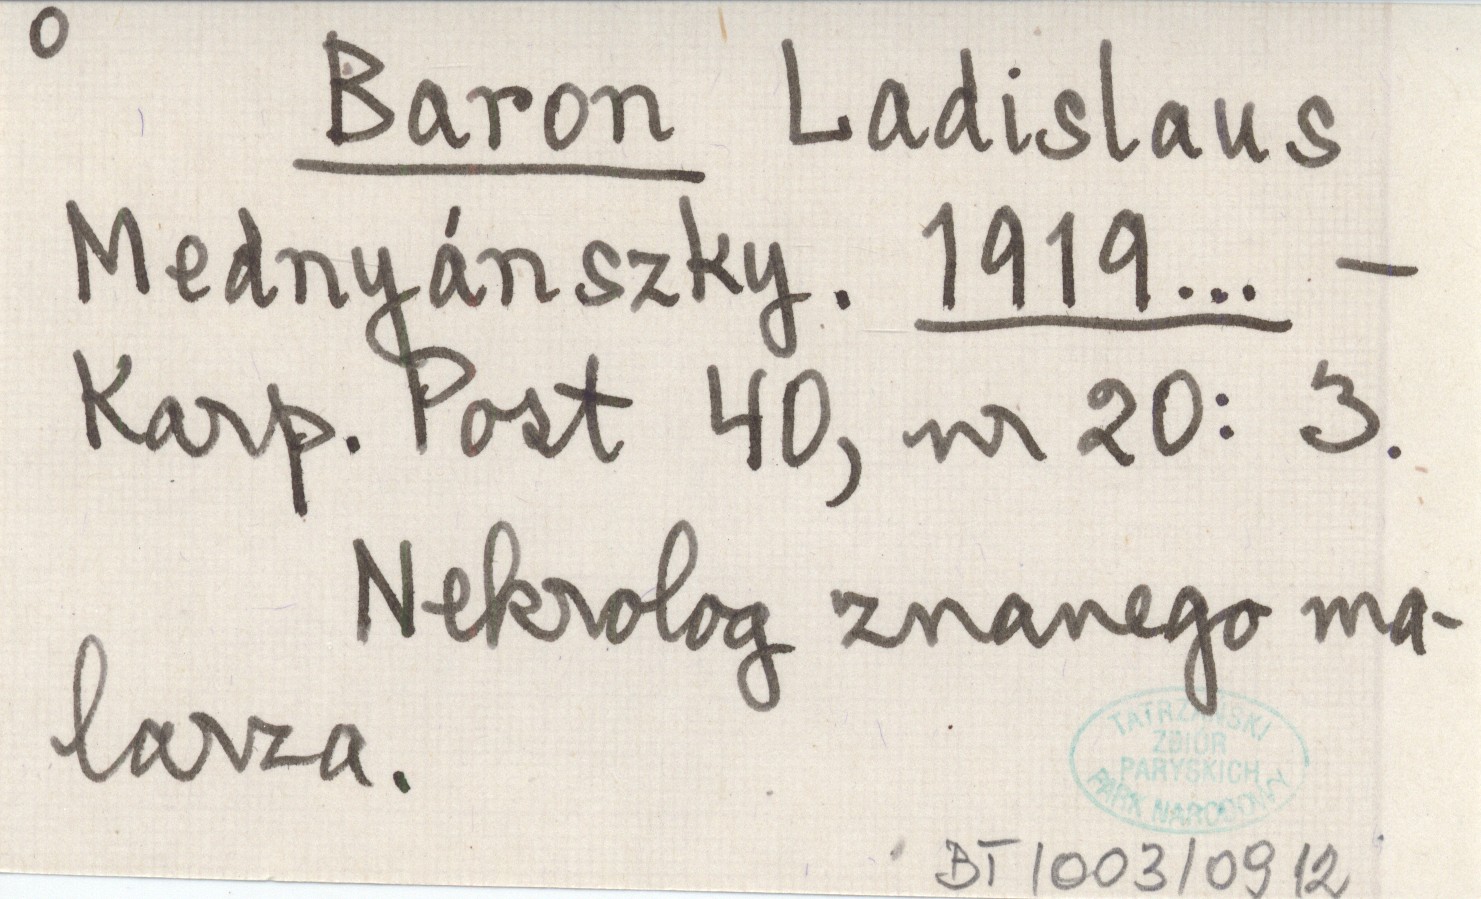 o
Baron Ladislaus
Mednyánszky. 1919... –
Karp. Post 40, nr 20: 3.
Nekrolog znanego ma-
larza.
TATRZAŃSKI
ZBIÓR
PARYSKICH
PARK NARODOWY
BT 1003/0912